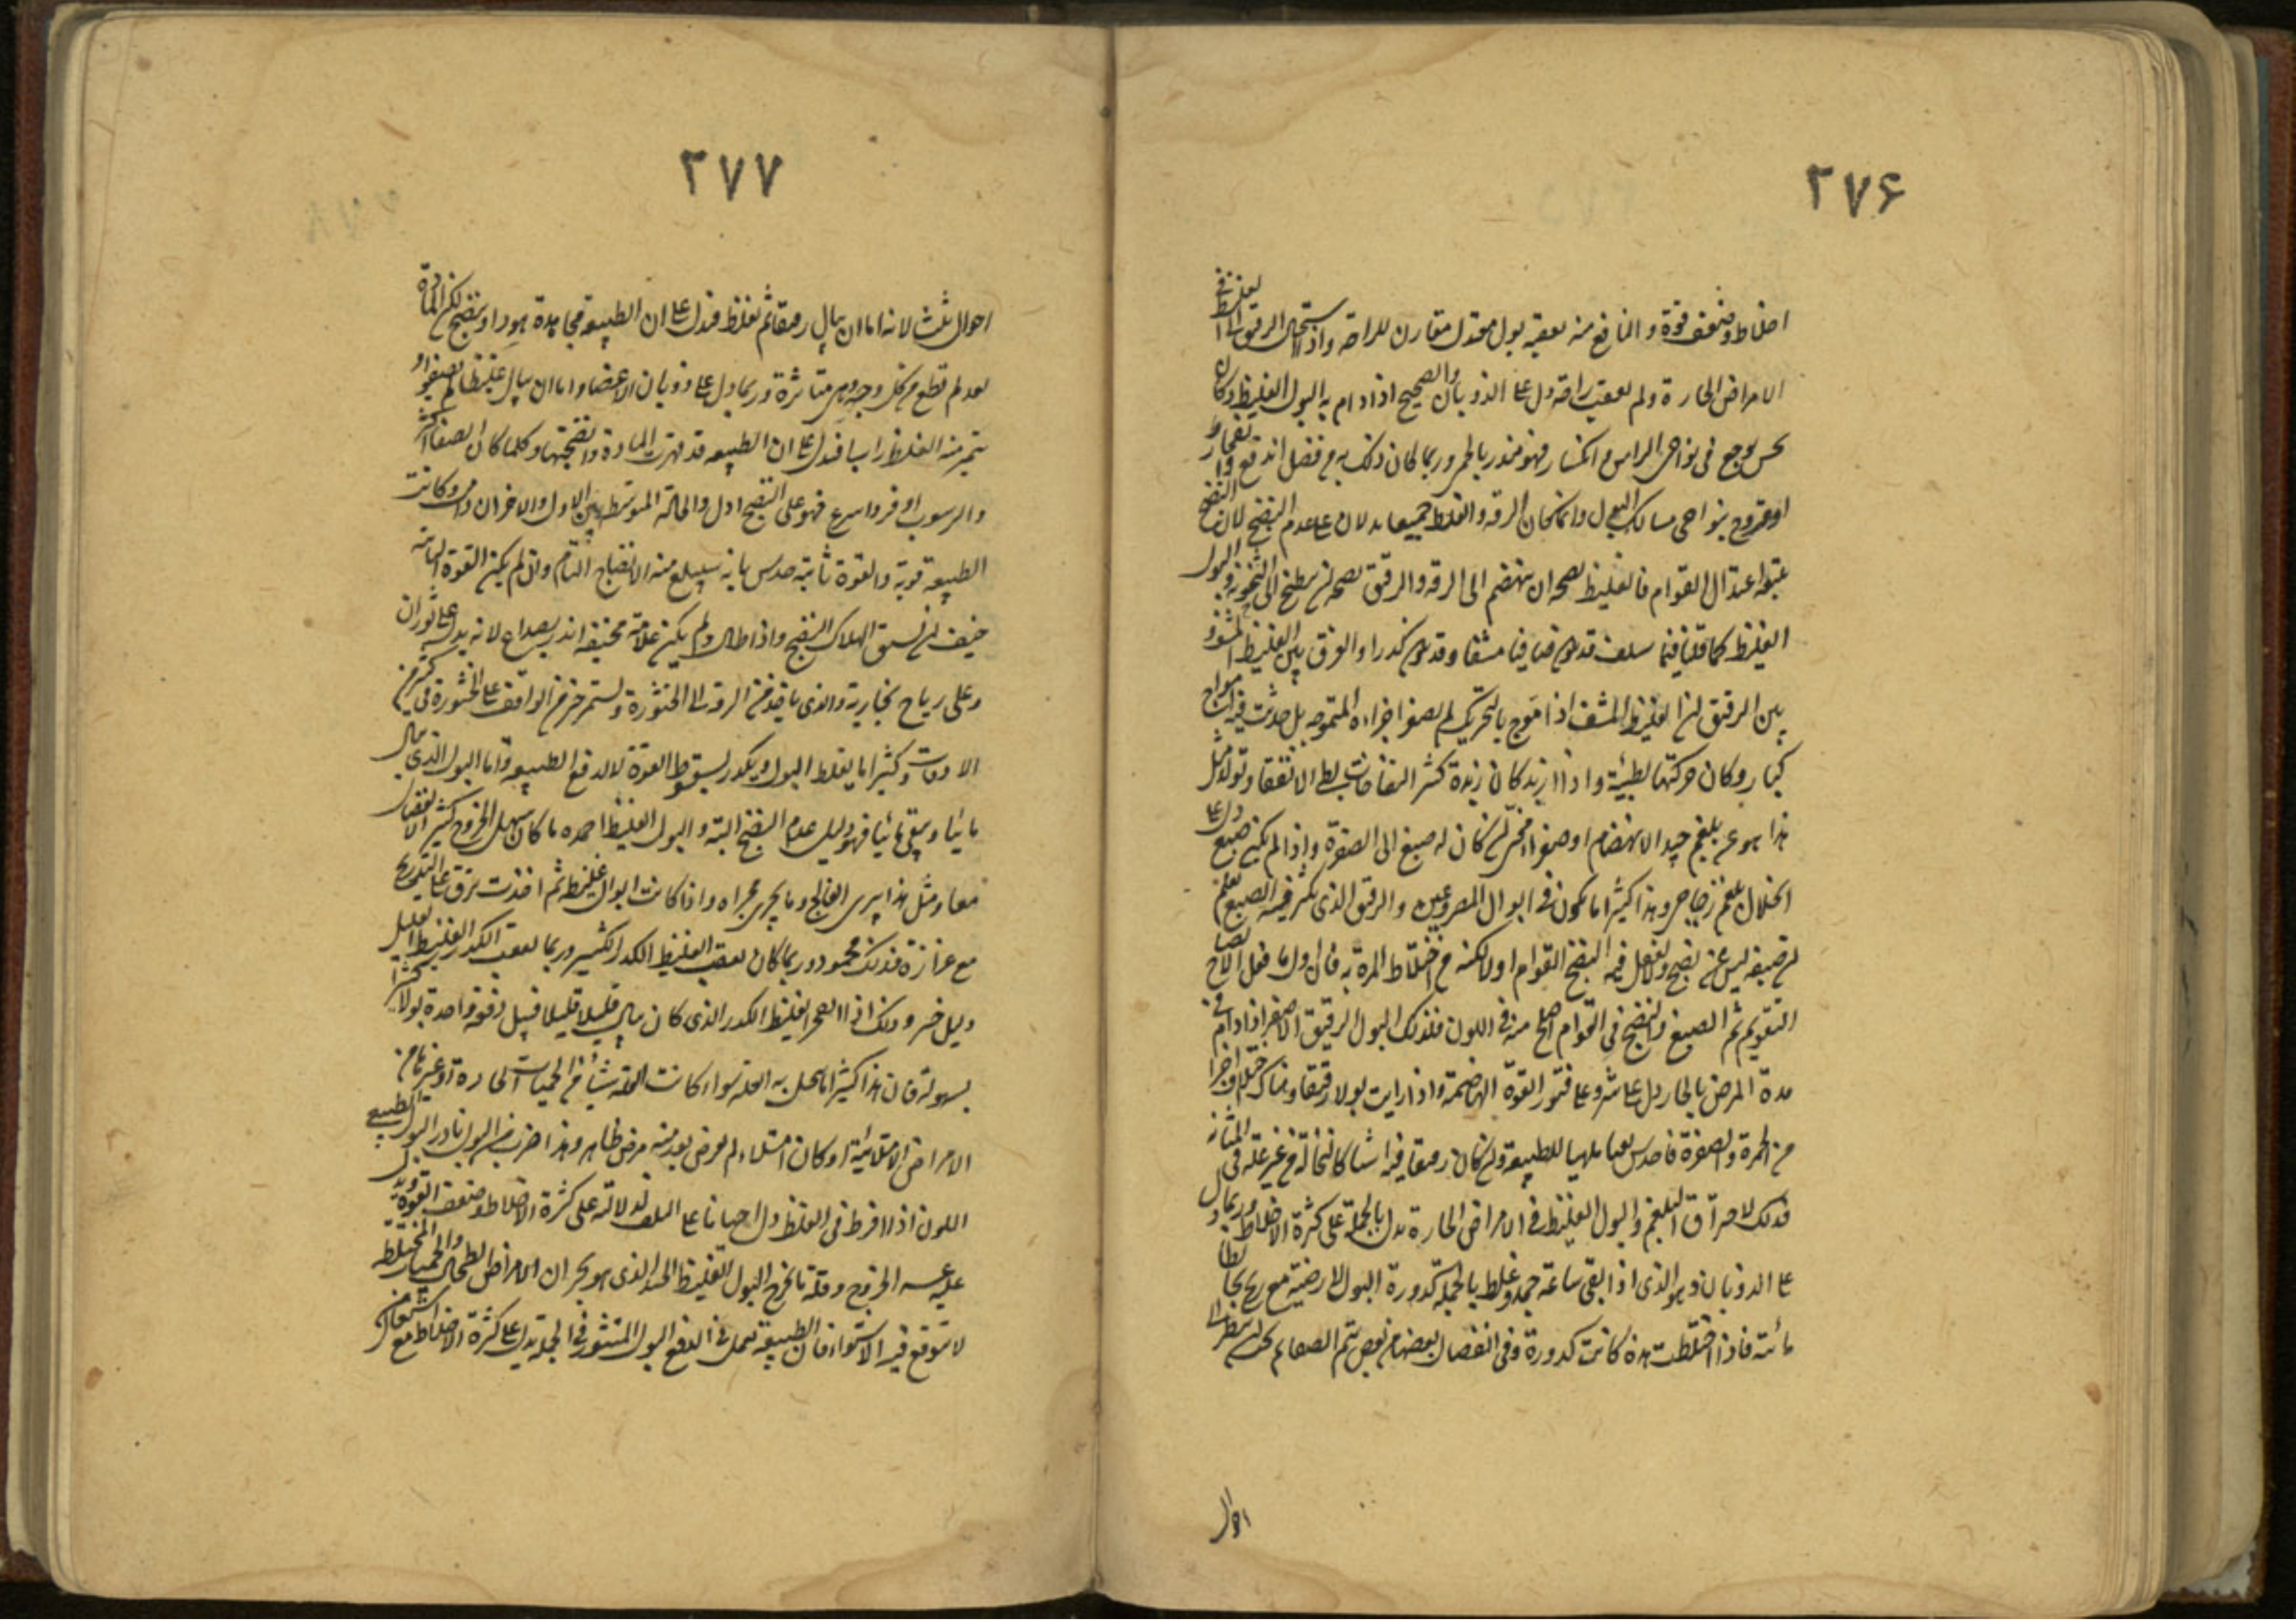 ۲۷۶
اخلاط وضعف قوة والنافع منه يعقبه بول معتدل مقارن للراحة واذا استحال الرقيق الى الغلظ في
الامراض الحارة ولم يعقب راحة دل على الذوبان والصحيح اذا دام به البول الغليظ وكان
يحس بوجع في نواحي الراس وانكسار فهو منذر بالحمى وربما كان ذلك به من فضل اندفع وانفجار
او قروح بنواحي مسالك البول وانما كان الرقة والغلظ جميعا يدلان على عدم النضج لان النضج
يتبعه اعتدال القوام فالغليظ يصحه ان ينهضم الى الرقة والرقيق يصحه ان يطبخ الى الثخونة والبول
الغليظ كما قلنا فيما سلف قد يكون صافيا مشفا وقد يكون كدرا والفرق بين الغليظ المشف و
بين الرقيق ان الغليظ المشف اذا موج بالتحريك لم يصغر اجزاءه المتموجة بل حدثت فيه امواج
كبار وكان حركتها بطيئة واذا ازبد كان زبده كثير النفاخات بطئ الانفقا وتولد مثل
هذا هو عن بلغم جيد الانهضام او صفراء محى ان كان له صبغ الى الصفرة واذا لم يكن صبغ دل على
انحلال بلغم زجاجي وهذا كثيرا ما يكون في ابوال المصروعين والرقيق الذي يكثر فيه الصبغ يعلم
ان صبغه ليس عن نضج والا لفعل فيه النضج القوام اولا لكنه من اختلاط المرة به فان اول ما فعل الانضاج
التقويم ثم الصبغ والنضج في القوام اصلح منه في اللون فلذلك البول الرقيق الاصفر اذا دام في
مدة المرض الحار دل على شر وعلى فتور القوة الهاضمة واذا رايت بولا رقيقا وهناك اختلاف اجزا
من الحمرة والصفرة فاحدس تعبا ملهبا للطبيعة وان كان رقيقا فيه اشيا كالنخالة من غير علة في المثانة
فذلك لاحتراق البلغم والبول الغليظ في الامراض الحارة يدل بالجملة على كثرة الاخلاط وربما دل
على الذوبان وهو الذي اذا بقي ساعة جمد وغلظ بالجملة كدورة البول لارضية مع ريح يخالطها
مائية فاذا اختلطت هذه كانت كدورة وفي انفصال بعضها من بعض يتم الصفا ثم يجب ان ينظر الى
احوال
۲۷۷
احوال ثلث لانه اما ان يبال رقيقا ثم يغلظ فيدل على ان الطبيعة مجاهدة هو ذا وينضج لكن المادة
بعد لم تطع من كل وجه وهي متاثرة وربما دل على ذوبان الاعضا واما ان يبال غليظا ثم يصفوا و
يتميز منه الغلظ راسبا فيدل على ان الطبيعة قد قهرت المادة وانضجتها وكلما كان الصفا اكثر
والرسوب اوفر واسرع فهو على النضج ادل والحالة المتوسطة بين الاول والاخر ان دامت وكانت
الطبيعة قوية والقوة ثابتة حدس بانه سيبلغ منه الانضاج التام وان لم يكن القوة ثابتة
خيف ان يسبق الهلاك النضج واذا طال ولم يكن علامة مخيفة انذر بصداع لانه يدل على ثوران
وعلى رياح بخارية والذي ياخذ من الرقة الى الخثورة ويستمر خير من الواقف على الخثورة في كثير من
الاوقات وكثيرا ما يغلظ البول ويكدر لسقوط القوة لا لدفع الطبيعة واما البول الذي يبال
مائيا ويبقى مائيا فهو دليل عدم النضج البتة والبول الغليظ احمده ما كان سهل الخروج كثير الانفصال
معا ومثل هذا يبرى الفالج وما يجري مجراه واذا كانت ابوال غليظة ثم اخذت ترق على التدريج
مع غزارة فذلك محمود وربما كان يعقب الغليظ الكدر الكثير وربما يعقب الكدر الغليظ القليل
دليل خير وذلك اذا انفجر الغليظ الكدر الذي كان يبال قليلا قليلا فيبل دفعة واحدة بولا كثيرا
بسهولة فان هذا كثيرا ما ينحل به العلة سواء كانت العلة شيأ من الحميات الحارة او غيرها من
الامراض الامتلائية او كان امتلاء لم يعرض بعد منه مرض ظاهر وهذا ضرب من البول نادر البول الطبيعي
اللون اذا افرط في الغلظ دل احيانا على التلف لدلالته على كثرة الاخلاط وضعف القوة ويدل
عليه عسر الخروج وقلة ما يخرج البول الغليظ الجيد الذي هو بحران الامراض الطحال والحميات المختلطة
لا يتوقع فيه الاستواء فان الطبيعة تعمل في الدفع البول المنثور في الجملة يدل على كثرة الاخلاط مع اشتغال من